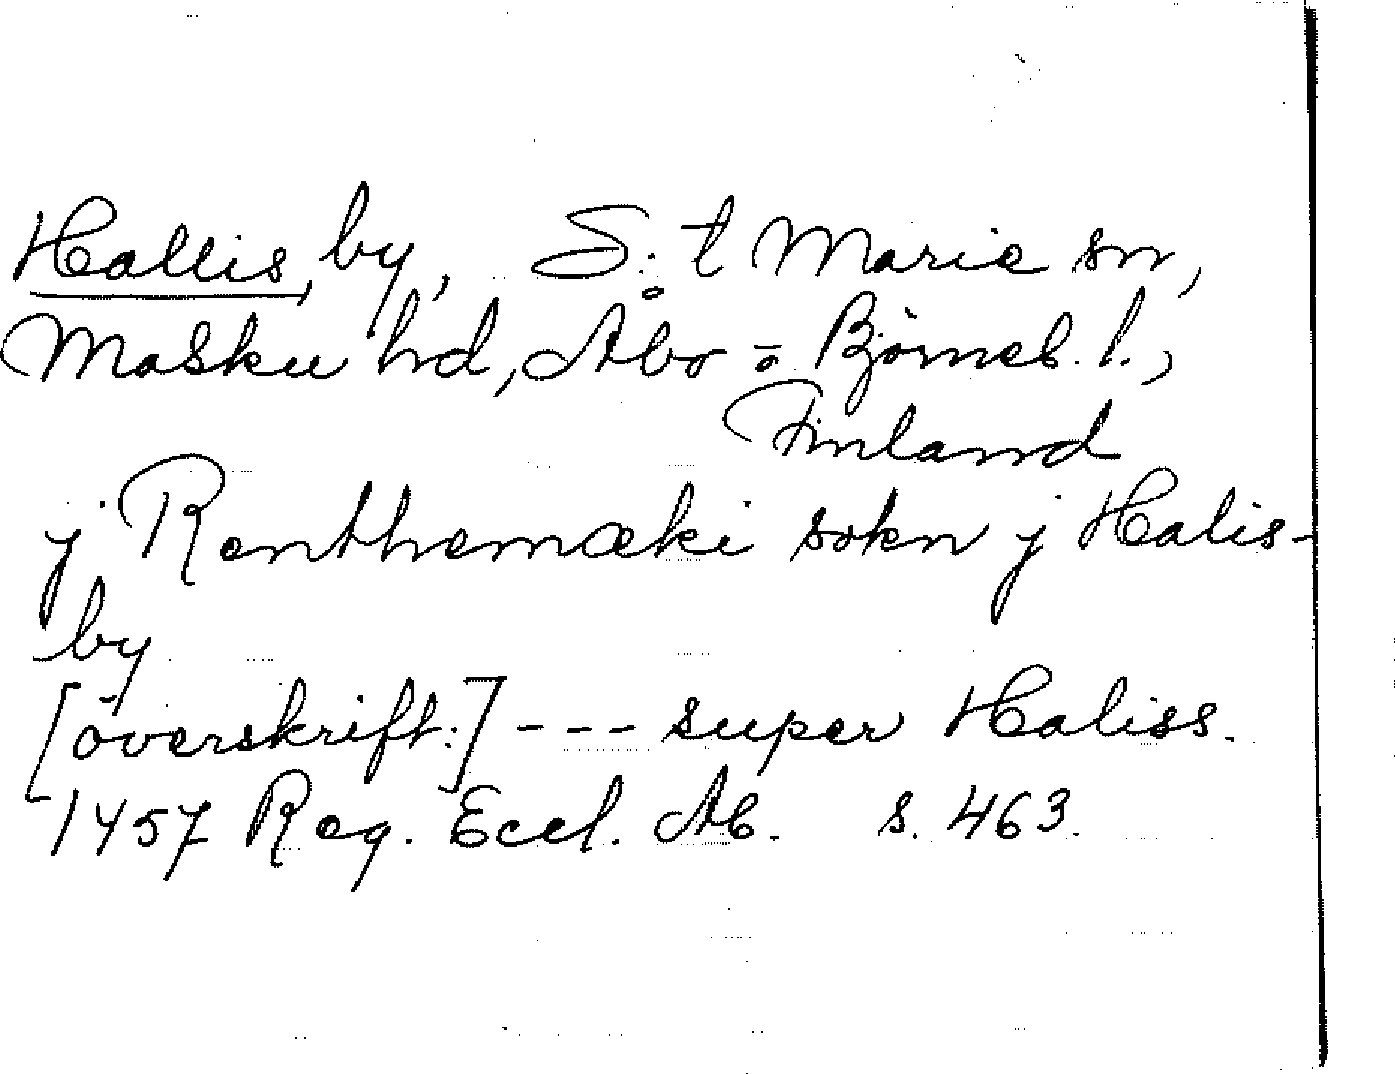 Hallis, by, S:t Marie sn,
Masku hd, Åbo o Björneb. l.,
Finland
j Renthemæki sokn j Halis-
by
[överskrift:] --- super Haliss.
1457 Reg. Eccl. Ab. s. 463.